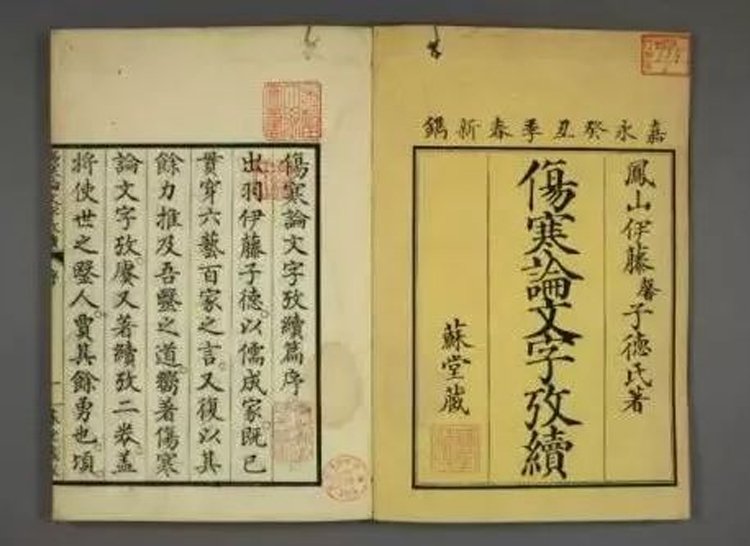 嘉永癸丑季春新鐫
鳳山伊藤馨子德氏著
傷寒論文字攷續
蘇堂藏
傷寒論文字攷續篇序
出羽伊藤子德。以儒成家。既已
貫穿六藝百家之言。又復以其
餘力推及吾醫之道。嚮著傷寒
論文字攷。屢又著續攷二卷。蓋
將使世之醫人。賈其餘勇也。頃